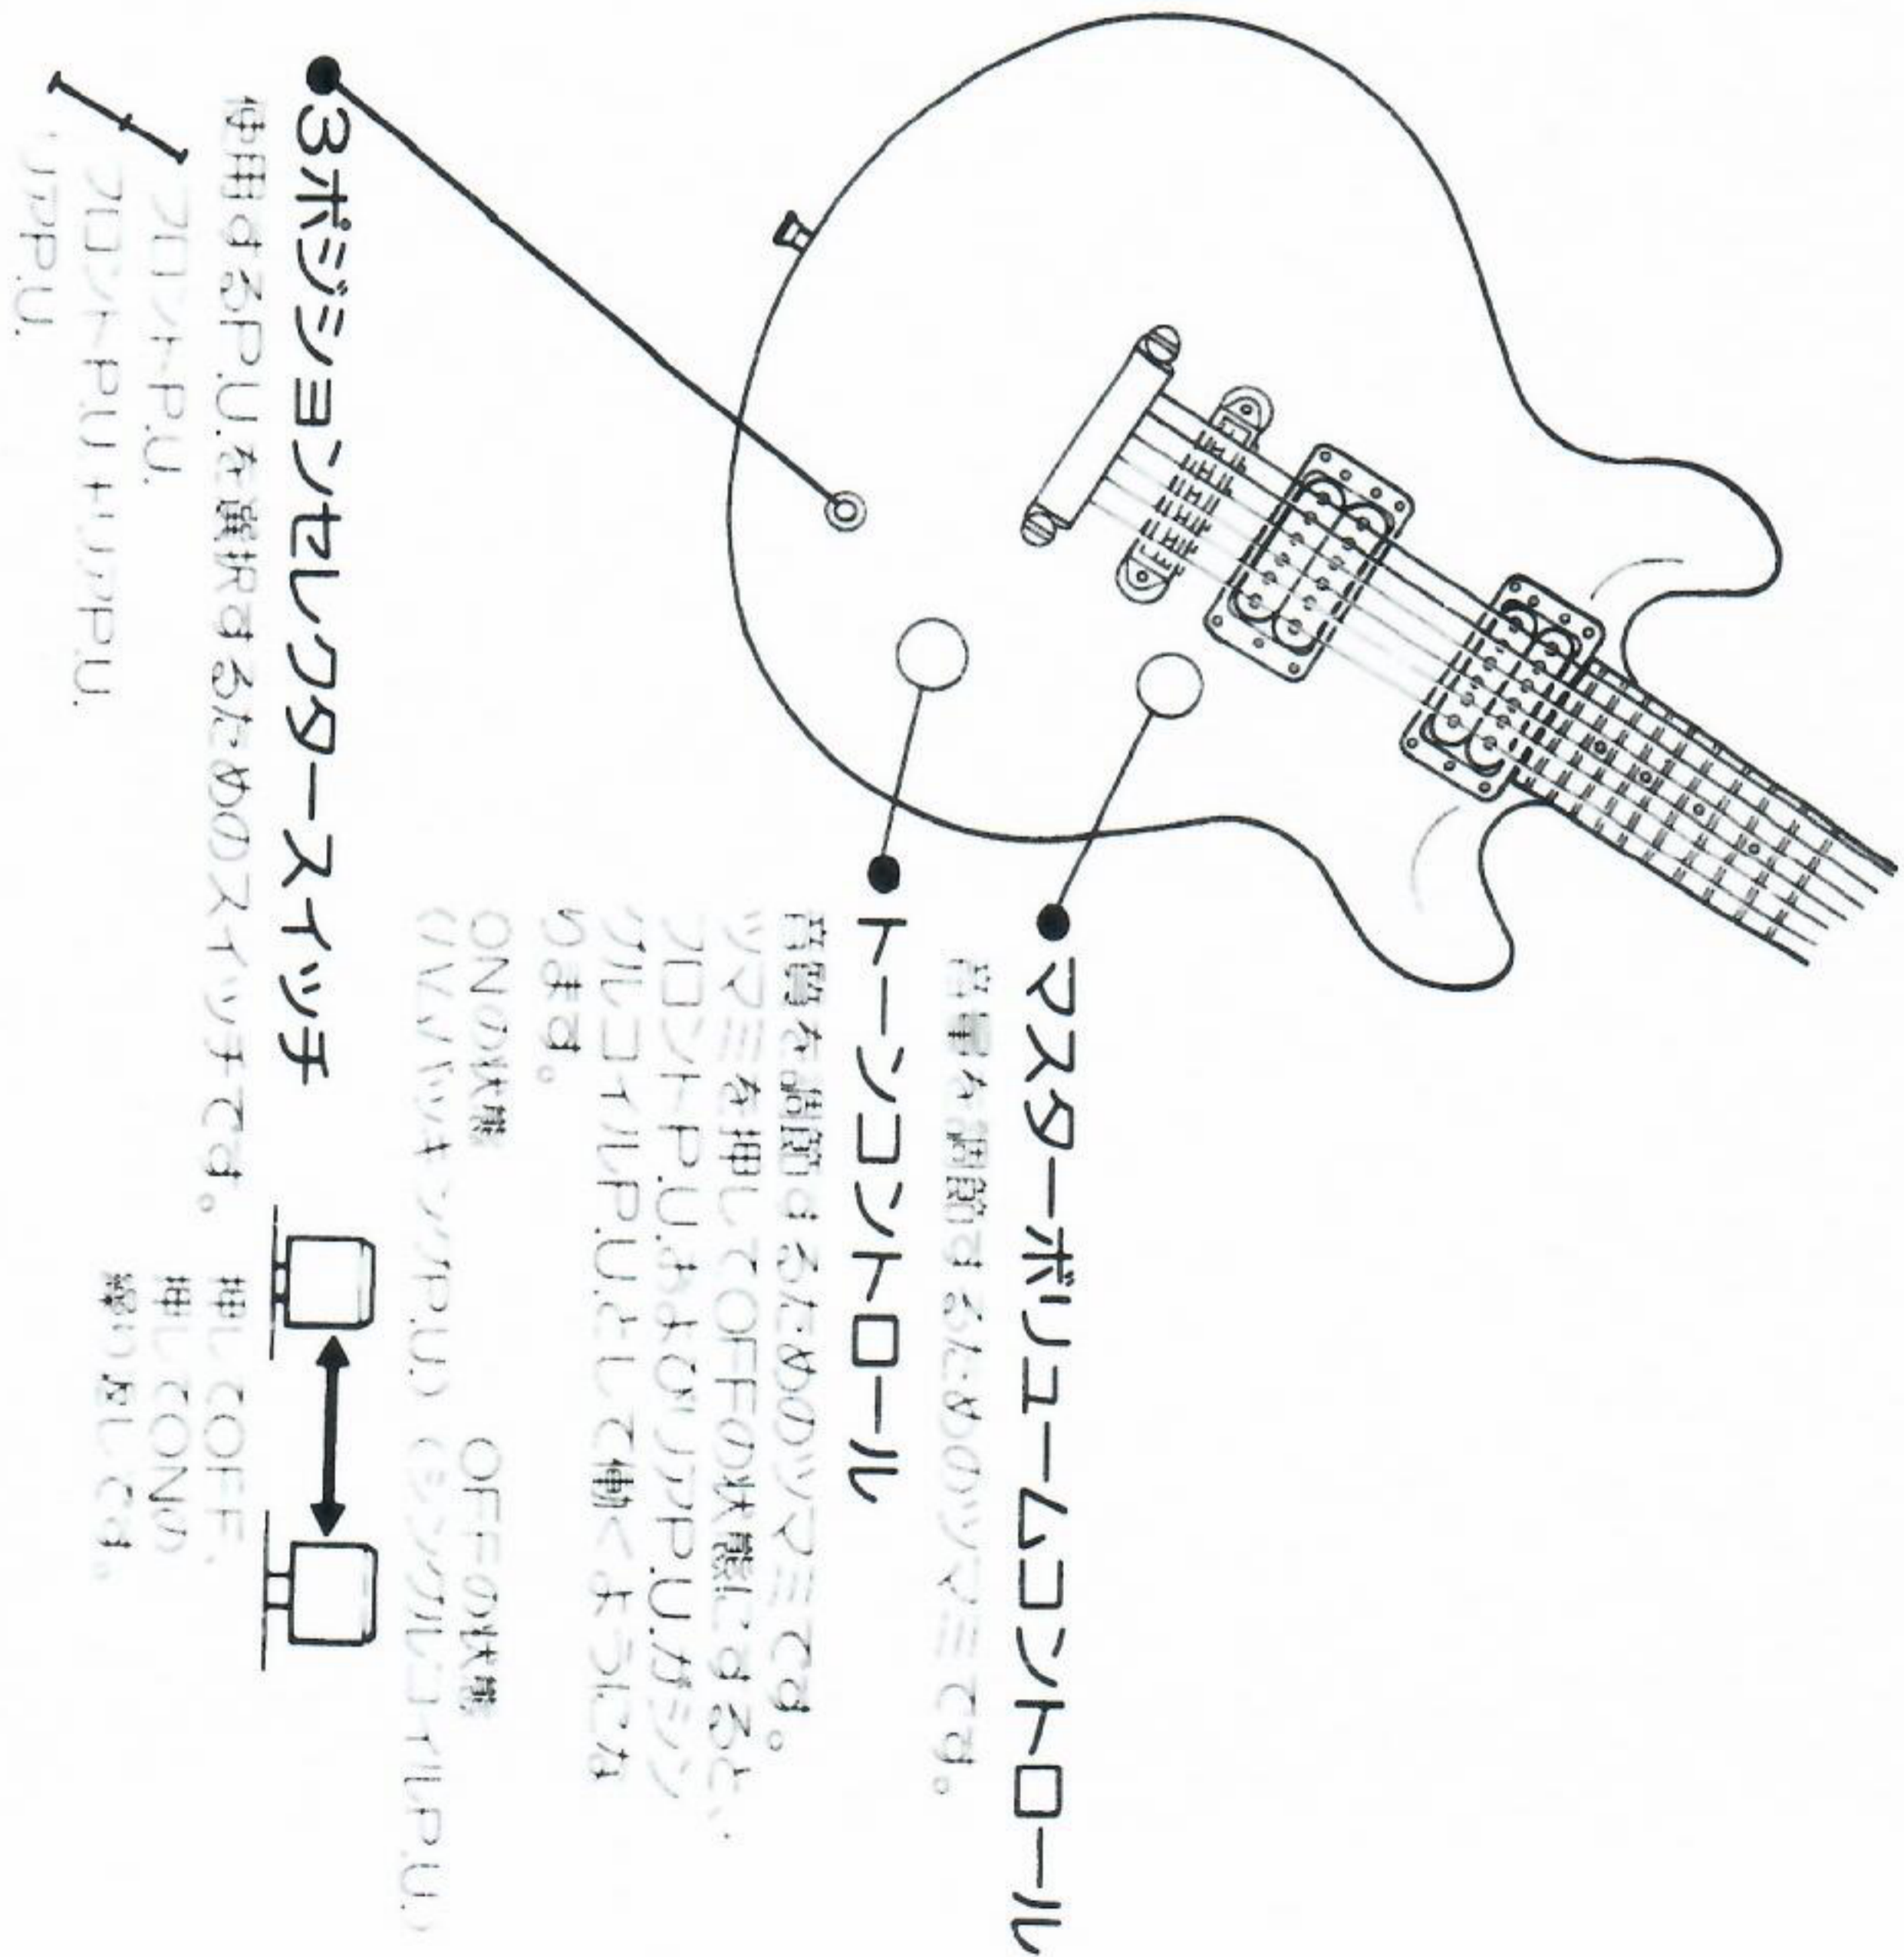 ●マスターボリュームコントロール
音量を調節するためのツマミです。
●トーンコントロール
音質を調節するためのツマミです。
ツマミを押してOFFの状態にすると、
フロントP.U.およびリアP.U.がシン
グルコイルP.U.として働くようにな
ります。
ONの状態 OFFの状態
(ハムバッキングP.U.) (シングルコイルP.U.)
押してOFF、
押してONの
繰り返しです。
●3ポジションセレクタースイッチ
使用するP.U.を選択するためのスイッチです。
フロントP.U.
フロントP.U.+リアP.U.
リアP.U.